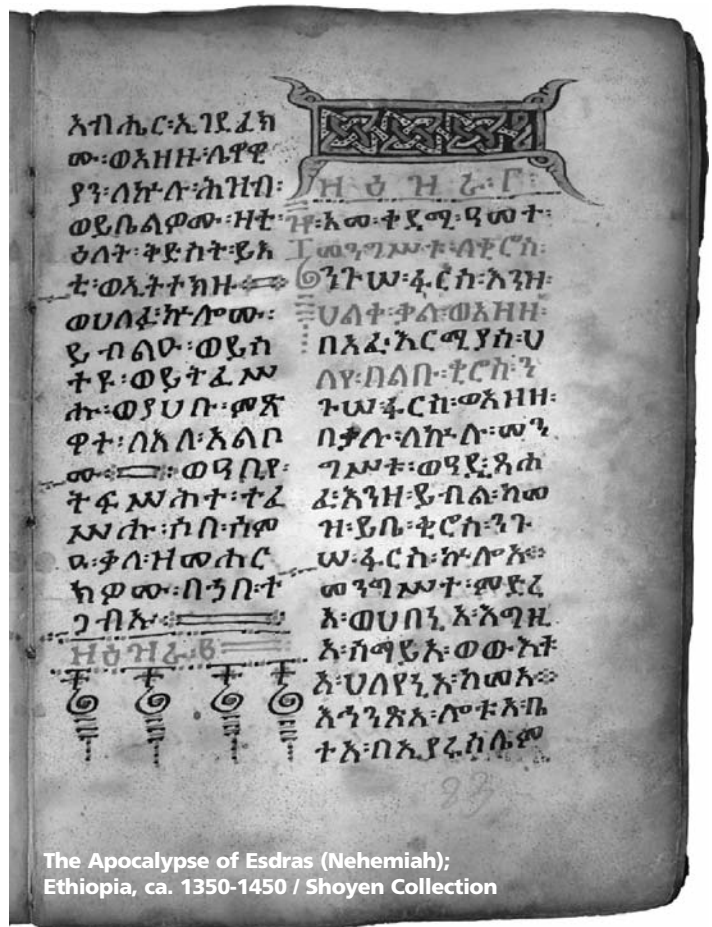 አብሔር፡ኢገደፈክ
ሙ፡ወአዘዙ፡ሌዋዊ
ያን፡ለኵሉ፡ሕዝብ፡
ወይቤልዎሙ፡ዛቲ፡
ዕለት፡ቅድስት፡ይእ
ቲ፡ወኢትተክዙ።
ወሀለፉ፡ኵሎሙ፡
ይብልዑ፡ወይስ
ተዩ፡ወይትፈሥ
ሑ፡ወያሀቡ፡ምጽ
ዋተ፡ለእለ፡አልቦ
ሙ፡።ወዓቢየ፡
ትፍሥሕተ፡ተፈ
ሥሑ፡ሶበ፡ሰም
ዑ፡ቃለ፡ዘመሐር
ክዎሙ፡በኀበ፡ተ
ጋብኡ።
ዘዕዝራ፡፪
ዘዕዝራ፡፫፡
አመ፡ቀዳሚ፡ዓመተ፡
መንግሥቱ፡ለቂሮስ፡
ንጉሠ፡ፋርስ፡እንዘ፡
ሀልቀ፡ቃለ፡ወአዘዘ፡
በአፈ፡ኤርሚያስ፡ሀ
ለየ፡በልቡ፡ቂሮስ፡ን
ጉሠ፡ፋርስ፡ወአዘዘ፡
በቃሉ፡ለኵሉ፡መን
ግሥት፡ወዓዲ፡ጸሐ
ፈ፡እንዘ፡ይብል፡ከመ
ዝ፡ይቤ፡ቂሮስ፡ንጉ
ሠ፡ፋርስ፡ኵሎአ።
መንግሥተ፡ምድረ
አ፡ወሀበኒአ፡እግዚ
አ፡ሰማይአ፡ወውእቱ
አ፡ሀለየኒአ፡ከመአ።
እሕንጽአ፡ሎቱአ፡ቤ
ተአ፡በኢየሩሳሌም
83
The Apocalypse of Esdras (Nehemiah);
Ethiopia, ca. 1350-1450 / Shoyen Collection